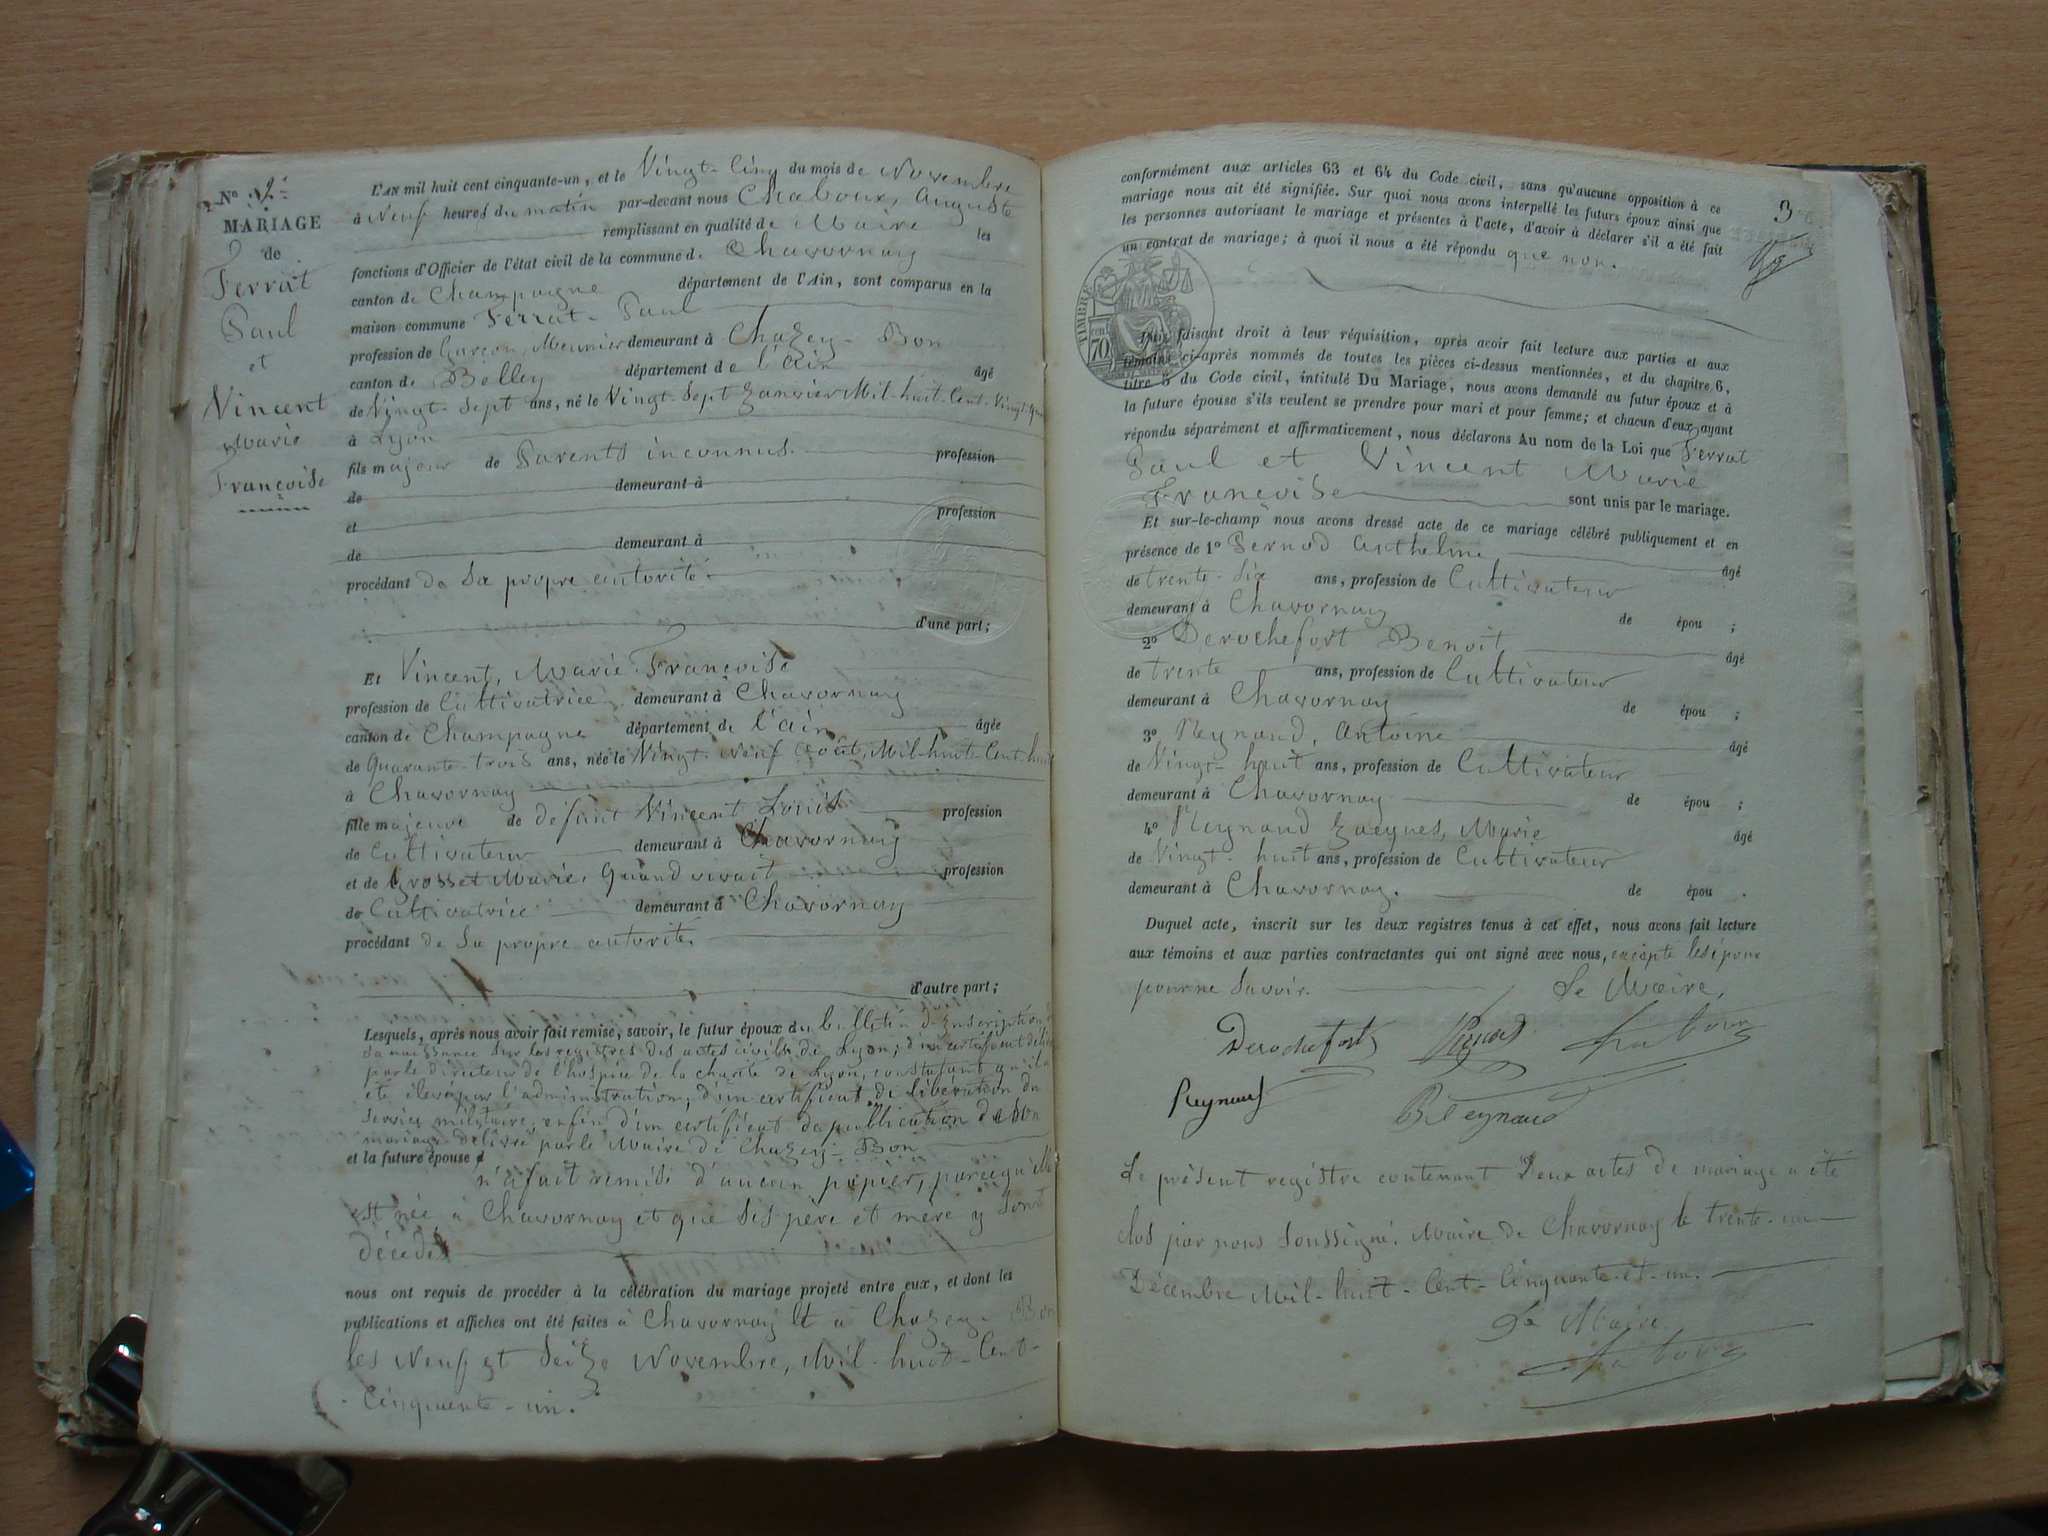 N° 2
MARIAGE
de
Ferrat
Paul
et
Vincent
Marie
Françoise
L'AN mil huit cent cinquante-un, et le Vingt-Cinq du mois de Novembre
à Neuf heures du matin par-devant nous Chaboux, Auguste
remplissant en qualité de Maire les
fonctions d'Officier de l'état civil de la commune d. Chavornay
canton de Champagne département de l'Ain, sont comparus en la
maison commune Ferrat-Paul
profession de Garçon, Meunier demeurant à Chazey-Bon
canton de Belley département de l'ain âgé
de Vingt-Sept ans, né le Vingt-Sept Janvier Mil-huit-Cent-Vingt-qua
à Lyon
fils majeur de Parents inconnus. profession
de demeurant à
et profession
de demeurant à
procédant de Sa propre autorité.
d'une part;
Et Vincent, Marie-Françoise
profession de Cultivatrice demeurant à Chavornay
canton de Champagne département de l'ain âgée
de Quarante-trois ans, née le Vingt-neuf août, Mil-huit-Cent-huit
à Chavornay
fille majeure de défunt Vincent Louis profession
de Cultivateur demeurant à Chavornay
et de Grosset Marie. Quand vivait profession
de Cultivatrice demeurant à Chavornay
procédant de Sa propre autorité.
d'autre part;
Lesquels, après nous avoir fait remise, savoir, le futur époux du bulletin d'inscription de
Sa naissance Sur les registres des actes civils de Lyon; d'un certificat délivré
par le directeur de l'hospice de la charité de Lyon, constatant qu'il a
été élevé par l'administration; d'un certificat de libération du
Service militaire, enfin d'un certificat de publication de Son
mariage délivré par le Maire de Chazey-Bon
et la future épouse
n'a fait remise d'aucun papier, parcequ'elle
est née à Chavornay et que Ses père et mère y Sont
décédés
nous ont requis de procéder à la célébration du mariage projeté entre eux, et dont les
publications et affiches ont été faites à Chavornay et à Chazey-Bon
les Neuf et Seize Novembre, Mil-huit-Cent-
Cinquante-un.
conformément aux articles 63 et 64 du Code civil, sans qu'aucune opposition à ce
mariage nous ait été signifiée. Sur quoi nous avons interpellé les futurs époux ainsi que
les personnes autorisant le mariage et présentes à l'acte, d'avoir à déclarer s'il a été fait
un contrat de mariage; à quoi il nous a été répondu que non.
3
TIMBRE
cent
70
Puis faisant droit à leur réquisition, après avoir fait lecture aux parties et aux
témoins ci-après nommés de toutes les pièces ci-dessus mentionnées, et du chapitre 6,
titre 5 du Code civil, intitulé Du Mariage, nous avons demandé au futur époux et à
la future épouse s'ils veulent se prendre pour mari et pour femme; et chacun d'eux ayant
répondu séparément et affirmativement, nous déclarons Au nom de la Loi que Ferrat
Paul et Vincent Marie
Françoise sont unis par le mariage.
Et sur-le-champ nous avons dressé acte de ce mariage célébré publiquement et en
présence de 1° Pernod Anthelme âgé
de trente-Six ans, profession de Cultivateur
demeurant à Chavornay de épou ;
2° Derochefort Benoit âgé
de trente ans, profession de Cultivateur
demeurant à Chavornay de épou ;
3° Reynaud, Antoine âgé
de Vingt-huit ans, profession de Cultivateur
demeurant à Chavornay de épou ;
4° Reynaud Jacques, Marie âgé
de Vingt-huit ans, profession de Cultivateur
demeurant à Chavornay. de épou .
Duquel acte, inscrit sur les deux registres tenus à cet effet, nous avons fait lecture
aux témoins et aux parties contractantes qui ont signé avec nous, excepté les époux
pour ne Savoir. Le Maire,
Derochefort Pernod Chaboux
Reynaud Reynaud
Le présent registre contenant Deux actes de mariage a été
clos par nous Soussigné. Maire de Chavornay le trente-un
Décembre Mil-huit-Cent-Cinquante-et-un.
Le Maire
Chaboux